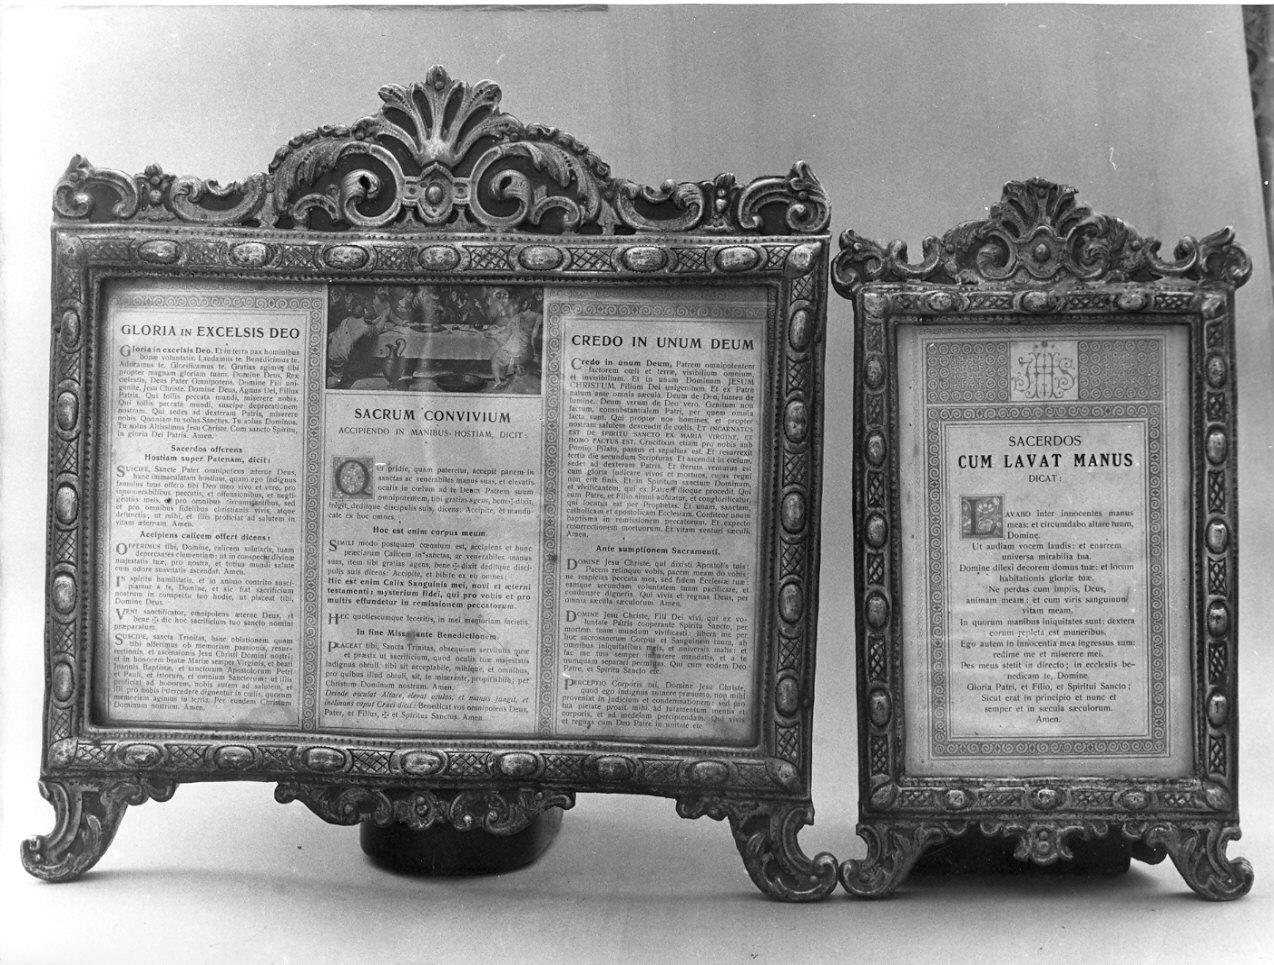 GLORIA IN EXCELSIS DEO
Gloria in excelsis Deo. Et in terra pax hominibus
bonæ voluntatis. Laudamus te. Benedicimus te.
Adoramus te. Glorificamus te. Gratias agimus tibi
propter magnam gloriam tuam. Domine Deus, Rex
cælestis, Deus Pater omnipotens. Domine Fili uni-
genite, Jesu Christe. Domine Deus, Agnus Dei, Filius
Patris. Qui tollis peccata mundi, miserere nobis.
Qui tollis peccata mundi, suscipe deprecationem
nostram. Qui sedes ad dexteram Patris, miserere
nobis. Quoniam tu solus Sanctus. Tu solus Dominus.
Tu solus Altissimus, Jesu Christe. Cum sancto Spiritu,
in gloria Dei Patris. Amen.
Sacerdos offerens
Hostiam super Patenam, dicit:
Suscipe, Sancte Pater omnipotens æterne Deus,
hanc immaculatam hostiam, quam ego indignus
famulus tuus offero tibi Deo meo vivo et vero, pro
innumerabilibus peccatis, et offensionibus, et negli-
gentiis meis, et pro omnibus circumstantibus, sed
et pro omnibus fidelibus christianis vivis, atque
defunctis; ut mihi, et illis proficiat ad salutem in
vitam æternam. Amen.
Accipiens calicem offert dicens:
Offerimus tibi, Domine, calicem salutaris, tuam
deprecantes clementiam: ut in conspectu divinæ
majestatis tuæ, pro nostra, et totius mundi salute
cum odore suavitatis ascendat. Amen.
In spiritu humilitatis, et in animo contrito susci-
piamur a te, Domine, et sic fiat sacrificium
nostrum in conspectu tuo hodie, ut placeat tibi,
Domine Deus.
Veni sanctificator, omnipotens æterne Deus,
et bene ✠ dic hoc sacrificium tuo sancto nomini
præparatum.
Suscipe, sancta Trinitas, hanc oblationem quam
tibi offerimus ob memoriam passionis, resur-
rectionis, et ascensionis Jesu Christi Domini nostri;
et in honorem beatæ Mariæ semper Virginis, et beati
Joannis Baptistæ, et sanctorum Apostolorum Petri
et Pauli, et istorum, et omnium Sanctorum: ut illis
proficiat ad honorem, nobis autem ad salutem, et
illi pro nobis intercedere dignentur in cælis, quorum
memoriam agimus in terris. Per eumdem Christum
Dominum nostrum. Amen.
SACRUM CONVIVIUM
ACCIPIENDO IN MANIBUS HOSTIAM, DICIT:
Qui pridie, quam pateretur, accepit panem in
sanctas ac venerabiles manus suas, et elevatis
oculis in cœlum ad te Deum Patrem suum
omnipotentem, tibi gratias agens, bene✠dixit,
fregit, deditque discipulis suis, dicens: Accipite, et mandu-
cate ex hoc omnes.
Hoc est enim corpus meum.
Simili modo postquam cœnatum est, accipiens et hunc
præclarum Calicem in sanctas, ac venerabiles manus
suas, item tibi gratias agens, bene✠dixit, deditque disci-
pulis suis dicens: Accipite, et bibite ex eo omnes:
Hic est enim Calix Sanguinis mei, novi et æterni
testamenti: mysterium fidei, qui pro vobis et pro
multis effundetur in remissionem peccatorum.
Hæc quotiescumque feceritis, in mei memoriam facietis.
In fine Missæ ante Benedictionem
Placeat tibi, Sancta Trinitas, obsequium servitutis meæ,
et præsta ut sacrificium, quod oculis tuæ majestatis
indignus obtuli, tibi sit acceptabile, mihique, et omnibus,
pro quibus illud obtuli, sit, te miserante, propitiabile. Per
Christum Dominum nostrum. Amen.
Deinde osculat Altare elevat oculos, et manus jungit, et
inclinans caput Cruci dicit: Benedicat vos omnipotens Deus,
Pater, et Filius, ✠ et Spiritus Sanctus. Amen.
CREDO IN UNUM DEUM
Credo in unum Deum, Patrem omnipotentem
factorem cœli et terræ, visibilium omnium,
et invisibilium. Et in unum Dominum JESUM
CHRISTUM, Filium Dei unigenitum. Et ex Patre
natum ante omnia sæcula. Deum de Deo, lumen de
lumine, Deum verum de Deo vero. Genitum non
factum, consubstantialem Patri, per quem omnia
facta sunt. Qui propter nos homines, et propter
nostram salutem descendit de cœlis. ET INCARNATUS
EST DE SPIRITU SANCTO EX MARIA VIRGINE, ET
HOMO FACTUS EST. Crucifixus etiam pro nobis sub
Pontio Pilato, passus et sepultus est. Et resurrexit
tertia die, secundum Scripturas. Et ascendit in cœlum,
sedet ad dexteram Patris. Et iterum venturus est
cum gloria judicare vivos et mortuos, cujus regni
non erit finis. Et in Spiritum sanctum Dominum,
et vivificantem, qui ex Patre Filioque procedit. Qui
cum Patre, et Filio simul adoratur, et conglorificatur,
qui locutus est per Prophetas. Et unam, sanctam,
catholicam et apostolicam Ecclesiam. Confiteor unum
baptisma in remissionem peccatorum. Et expecto
resurrectionem mortuorum. Et vitam venturi sæculi.
Amen.
Ante sumptionem Sacramenti.
Domine Jesu Christe, qui dixisti Apostolis tuis:
Pacem relinquo vobis, pacem meam do vobis:
ne respicias peccata mea, sed fidem Ecclesiæ tuæ:
eamque secundum voluntatem tuam pacificare, et
coadunare digneris. Qui vivis et regnas Deus, per
omnia sæcula sæculorum. Amen.
Domine Jesu Christe, Fili Dei vivi, qui ex vo-
luntate Patris cooperante Spiritu Sancto, per
mortem tuam mundum vivificasti: libera me per
hoc sacrosanctum Corpus et Sanguinem tuum, ab
omnibus iniquitatibus meis, et universis malis, et
fac me tuis semper inhærere mandatis, et a te
nunquam separari permittas. Qui cum eodem Deo
Patre, et Spiritu Sancto etc.
Perceptio Corporis tui, Domine Jesu Christe,
quod ego indignus sumere præsumo, non mihi
proveniat in judicium et condemnationem: sed pro
tua pietate prosit mihi ad tutamentum mentis et
corporis, et ad medelam percipiendam. Qui vivis
et regnas cum Deo Patre in unitate etc.
SACERDOS
CUM LAVAT MANUS
DICAT:
Lavabo inter innocentes manus
meas: et circumdabo altare tuum,
Domine.
Ut audiam vocem laudis: et enarrem
universa mirabilia tua.
Domine dilexi decorem domus tuæ: et locum
habitationis gloriæ tuæ.
Ne perdas cum impiis, Deus,
animam meam: et cum viris sanguinum
vitam meam.
In quorum manibus iniquitates sunt: dextera
eorum repleta est muneribus.
Ego autem in innocentia mea ingressus sum:
redime me et miserere mei.
Pes meus stetit in directo; in ecclesiis be-
nedicam te, Domine.
Gloria Patri, et Filio, et Spiritui Sancto;
Sicut erat in principio et nunc et
semper et in sæcula sæculorum.
Amen.